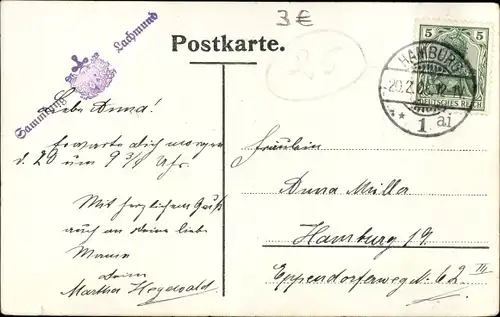 3 €
Postkarte.
Sammlung Lachmund
HAMBURG
20.2.
* * 1 ai
5 5
DEUTSCHES REICH
Liebe Anna!
Erwarte dich morgen
d. 20 um 9 3/4 Uhr.
Mit herzlichem Gruß
auch an deine liebe
Mama
deine
Martha Hegewald
Fräulein
Anna Milla
Hamburg 19.
Eppendorferweg No 62 III